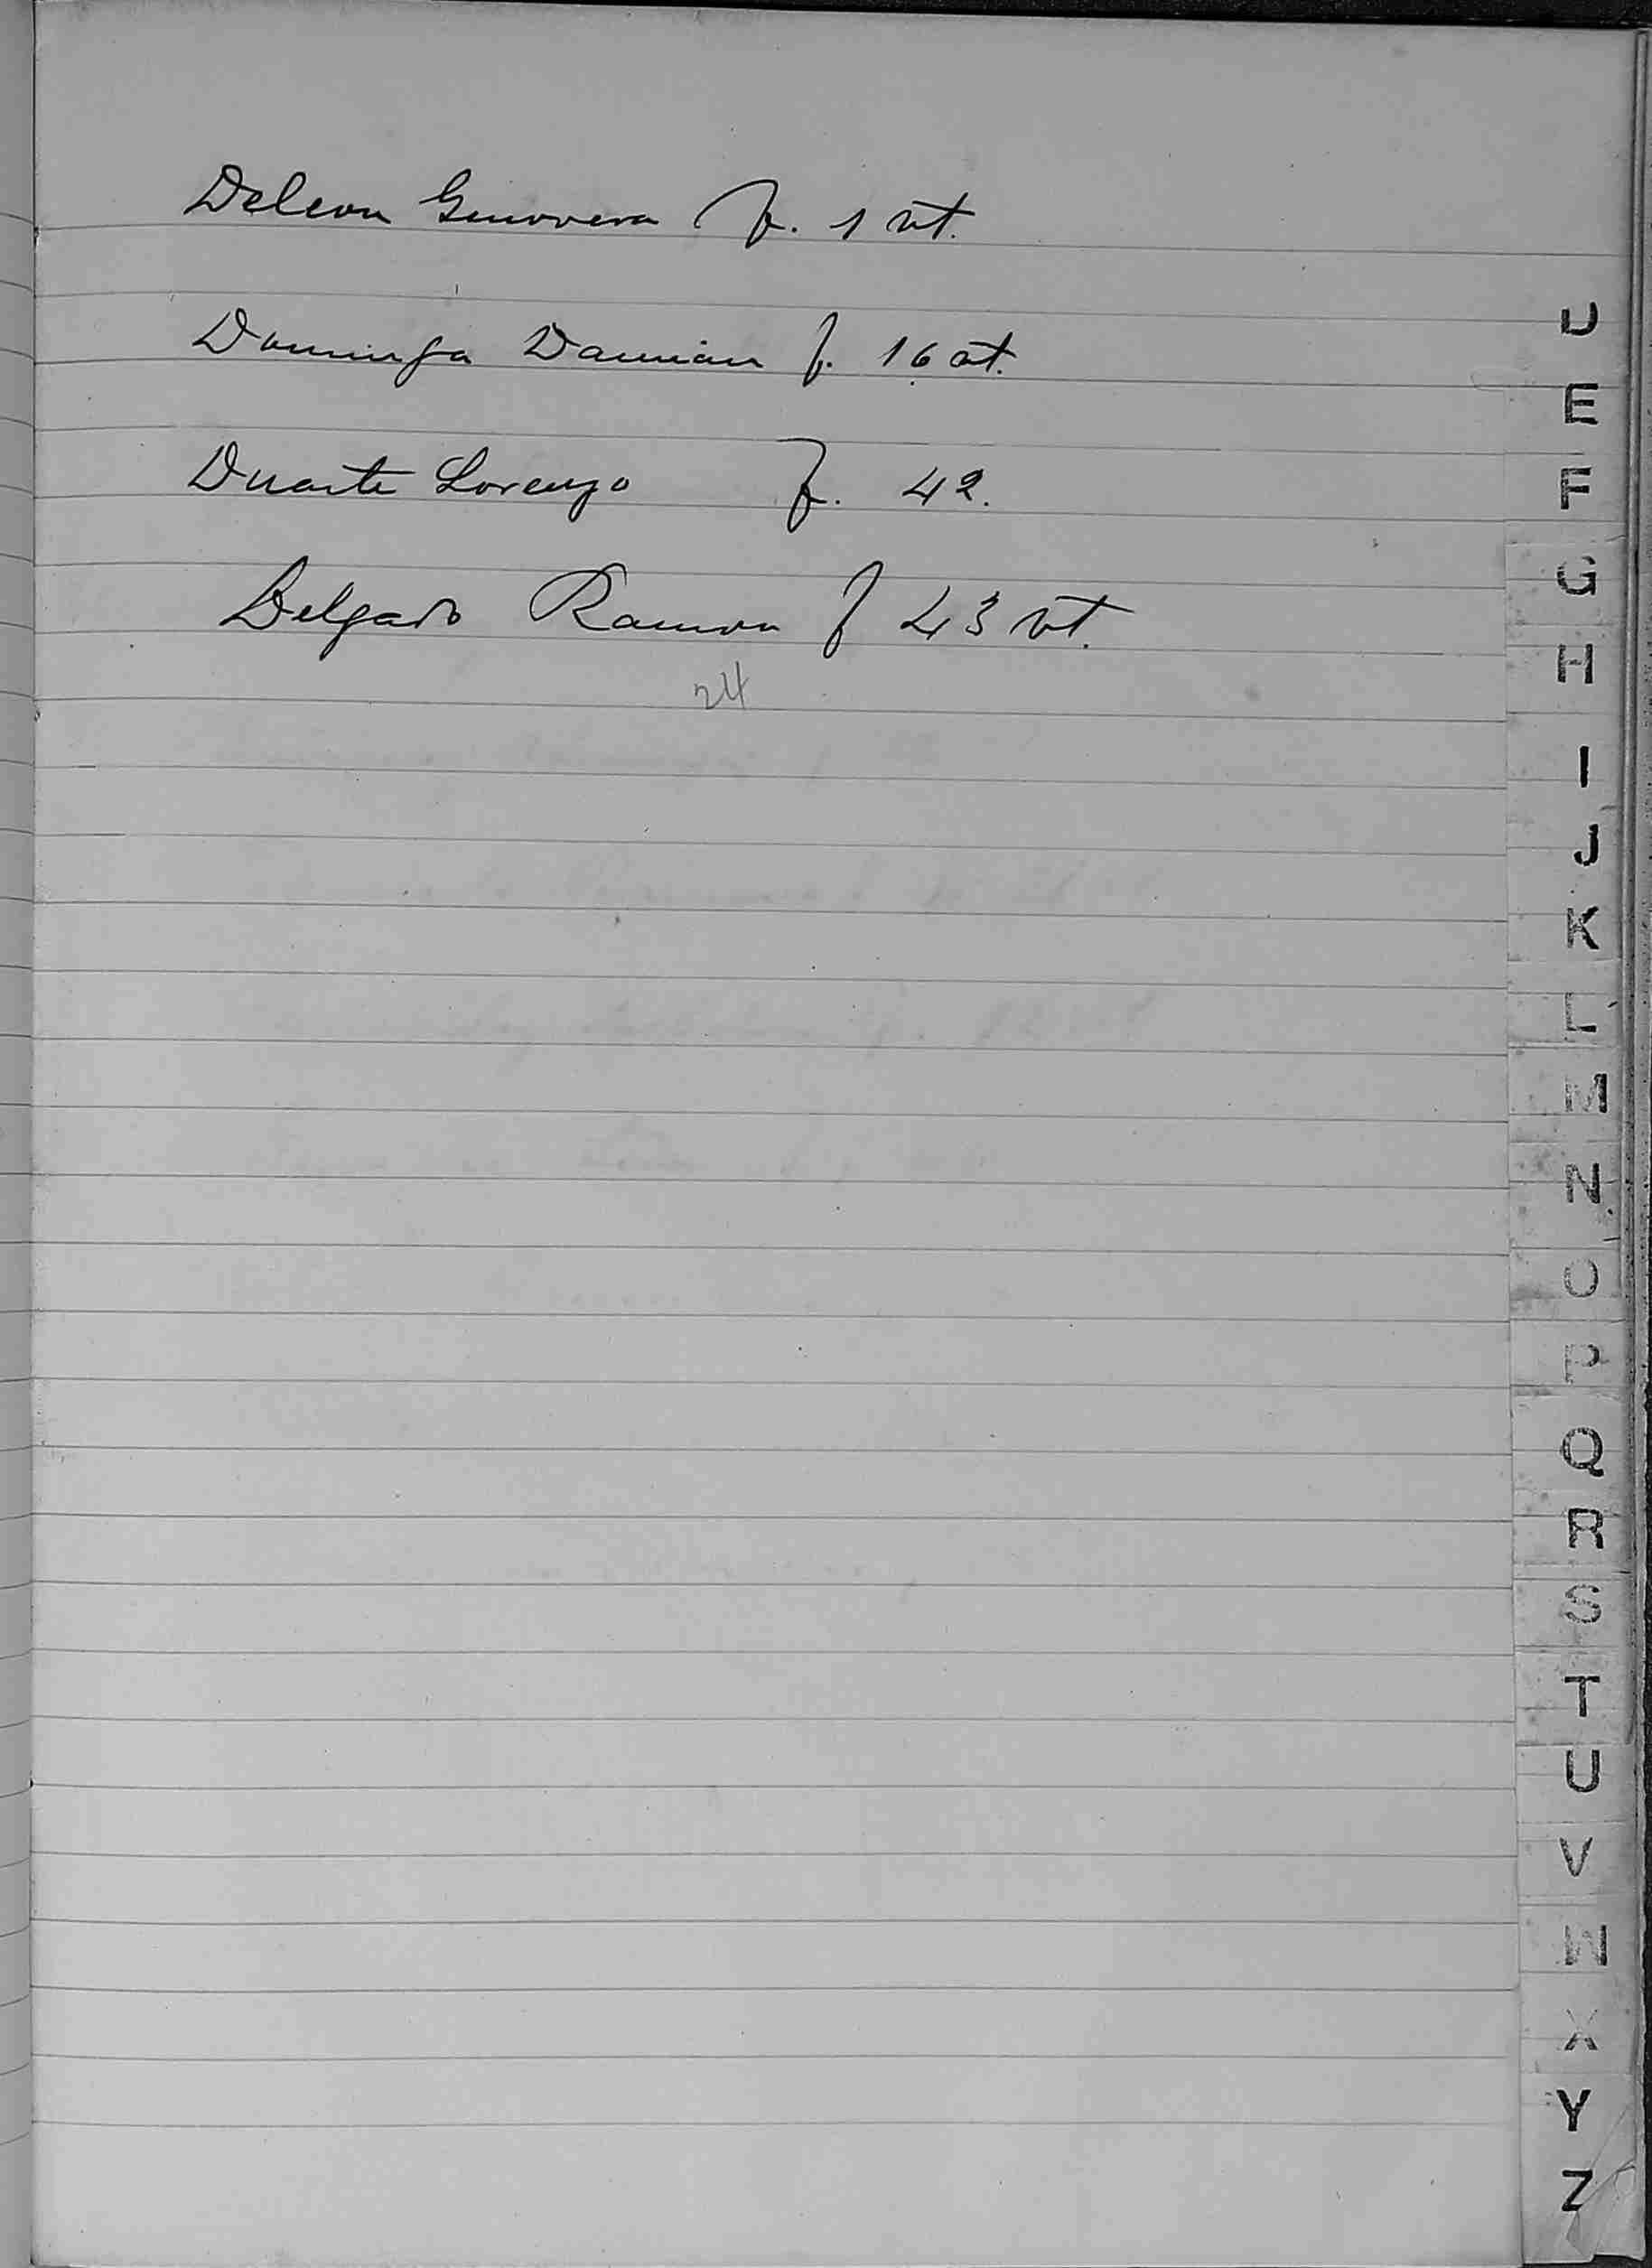 Deleon Genoveva f. 1 vt.
Dominga Damian f. 16 vt.
Duarte Lorenzo f. 42.
Delgado Ramon f 43 vt.
24
D
E
F
G
H
I
J
K
L
M
N
O
P
Q
R
S
T
U
V
W
X
Y
Z